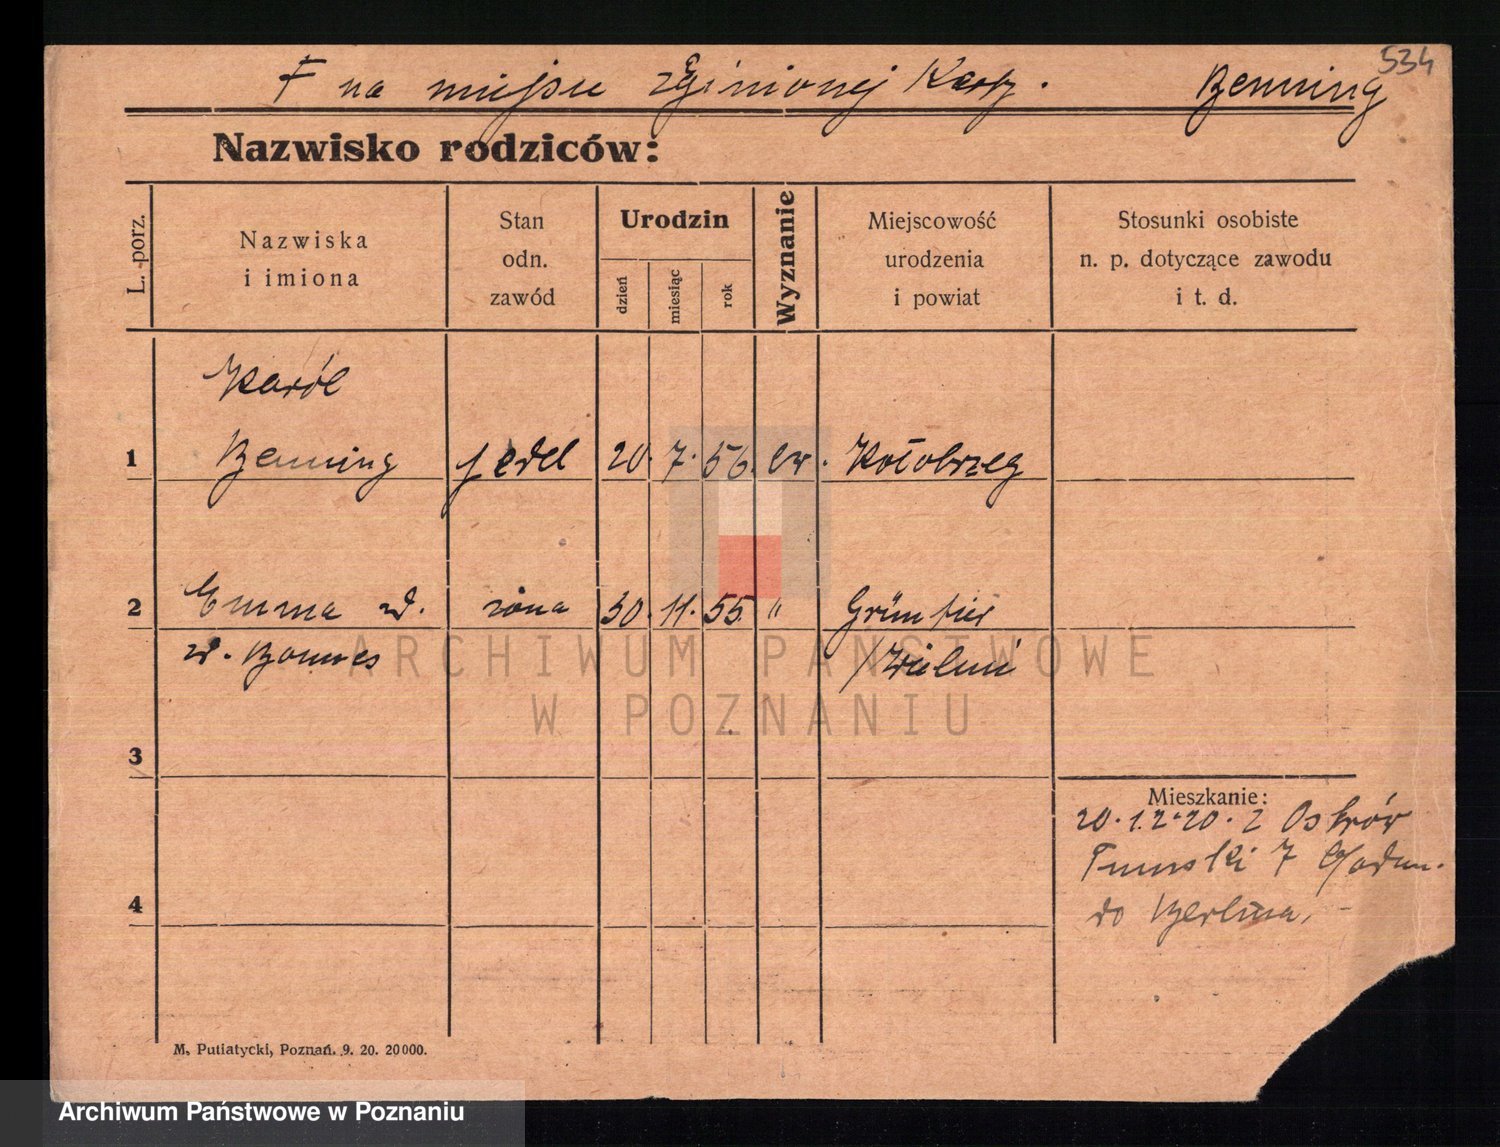 534
F na miejsu zginionej Karty. Benning
Nazwisko rodziców:
L. porz.
Nazwiska
i imiona
Stan
odn.
zawód
Urodzin
dzień
miesiąc
rok
Wyznanie
Miejscowość
urodzenia
i powiat
Stosunki osobiste
n. p. dotyczące zawodu
i t. d.
Karól
1 Benning 20. 7. 56. ew. Kołobrzeg
2 Emma żona 30. 11. 55. "
ARCHIWUM PAŃSTWOWE
W POZNANIU
3
Mieszkanie:
20. 12. 20. z Ostrów
Tumski 7
4
do Berlina,
M. Putiatycki, Poznań. 9. 20. 20000.
Archiwum Państwowe w Poznaniu